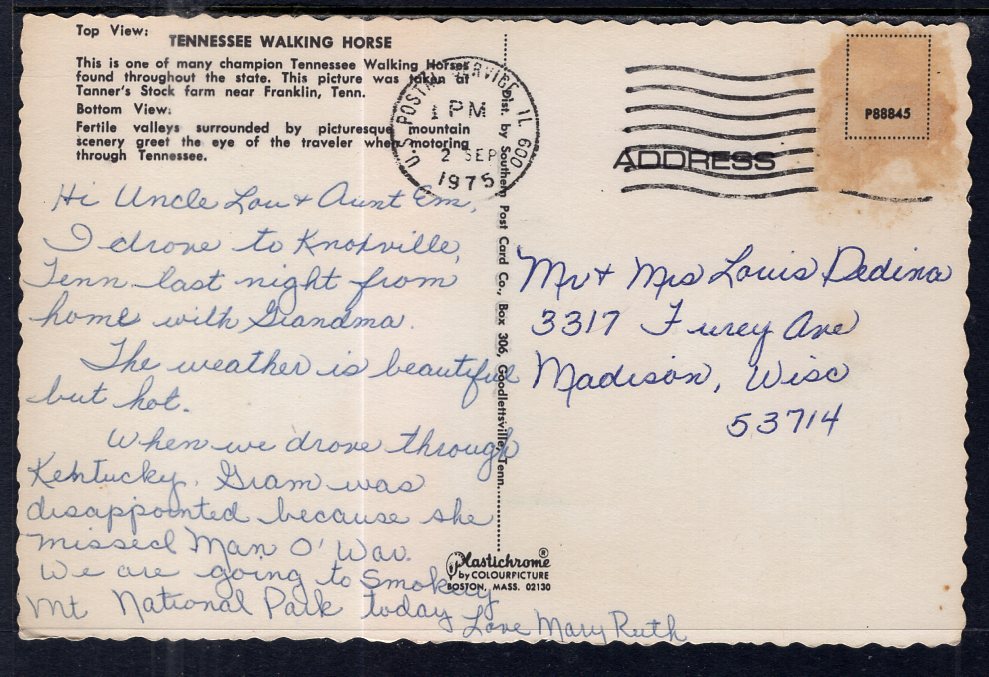 Top View:
TENNESSEE WALKING HORSE
This is one of many champion Tennessee Walking Horses
found throughout the state. This picture was taken at
Tanner's Stock farm near Franklin, Tenn.
Bottom View:
Fertile valleys surrounded by picturesque mountain
scenery greet the eye of the traveler when motoring
through Tennessee.
Hi Uncle Lou & Aunt Em,
I drove to Knoxville,
Tenn last night from
home with Grandma.
The weather is beautiful
but hot.
When we drove through
Kentucky, Gram was
disappointed because she
missed Man O' War.
We are going to Smokey
Mt National Park today
Love Mary Ruth
Dist. by Southern Post Card Co., Box 306, Goodlettsville, Tenn.
Plastichrome®
by COLOURPICTURE
BOSTON, MASS. 02130
U.S. POSTAL SERVICE, IL 600
1 PM
2 SEP
1975
P88845
ADDRESS
Mr & Mrs Louis Dedina
3317 Furey Ave
Madison, Wisc
53714